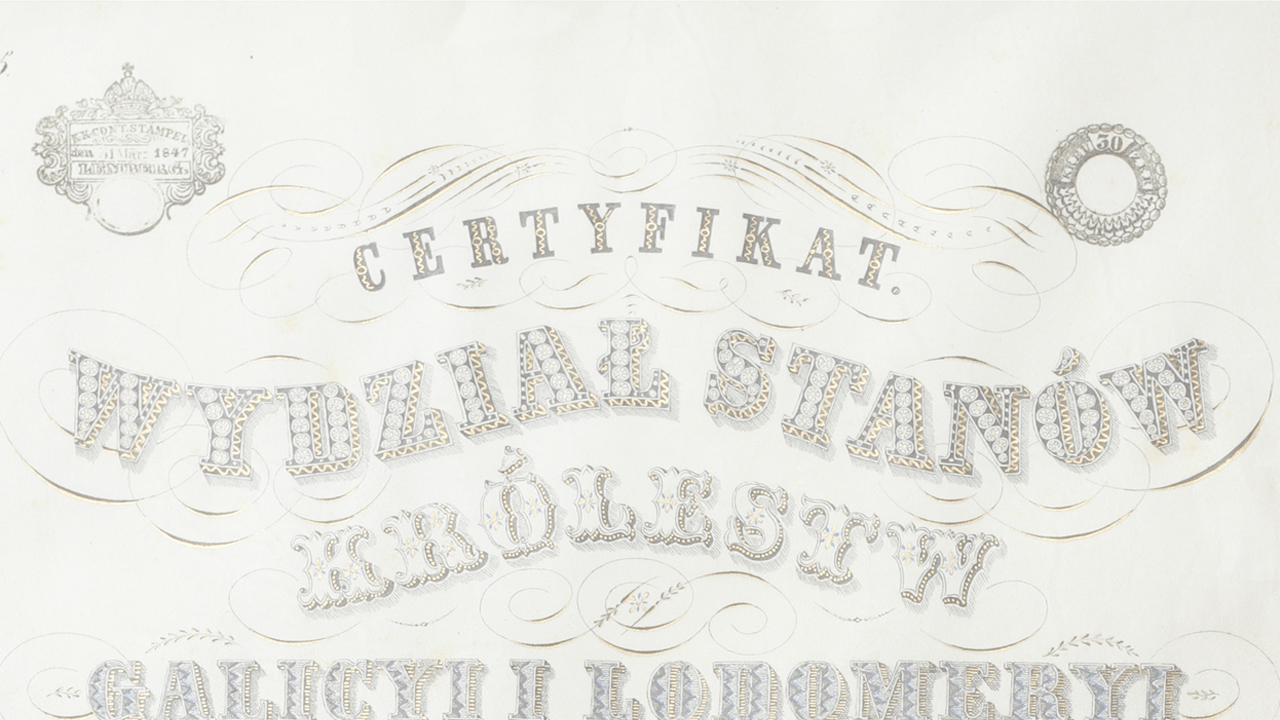 K.K.CONT.STAMPEL
den 31 März 1847
30
CERTYFIKAT.
WYDZIAŁ STANÓW
KRÓLESTW
GALICYI I LODOMERYI